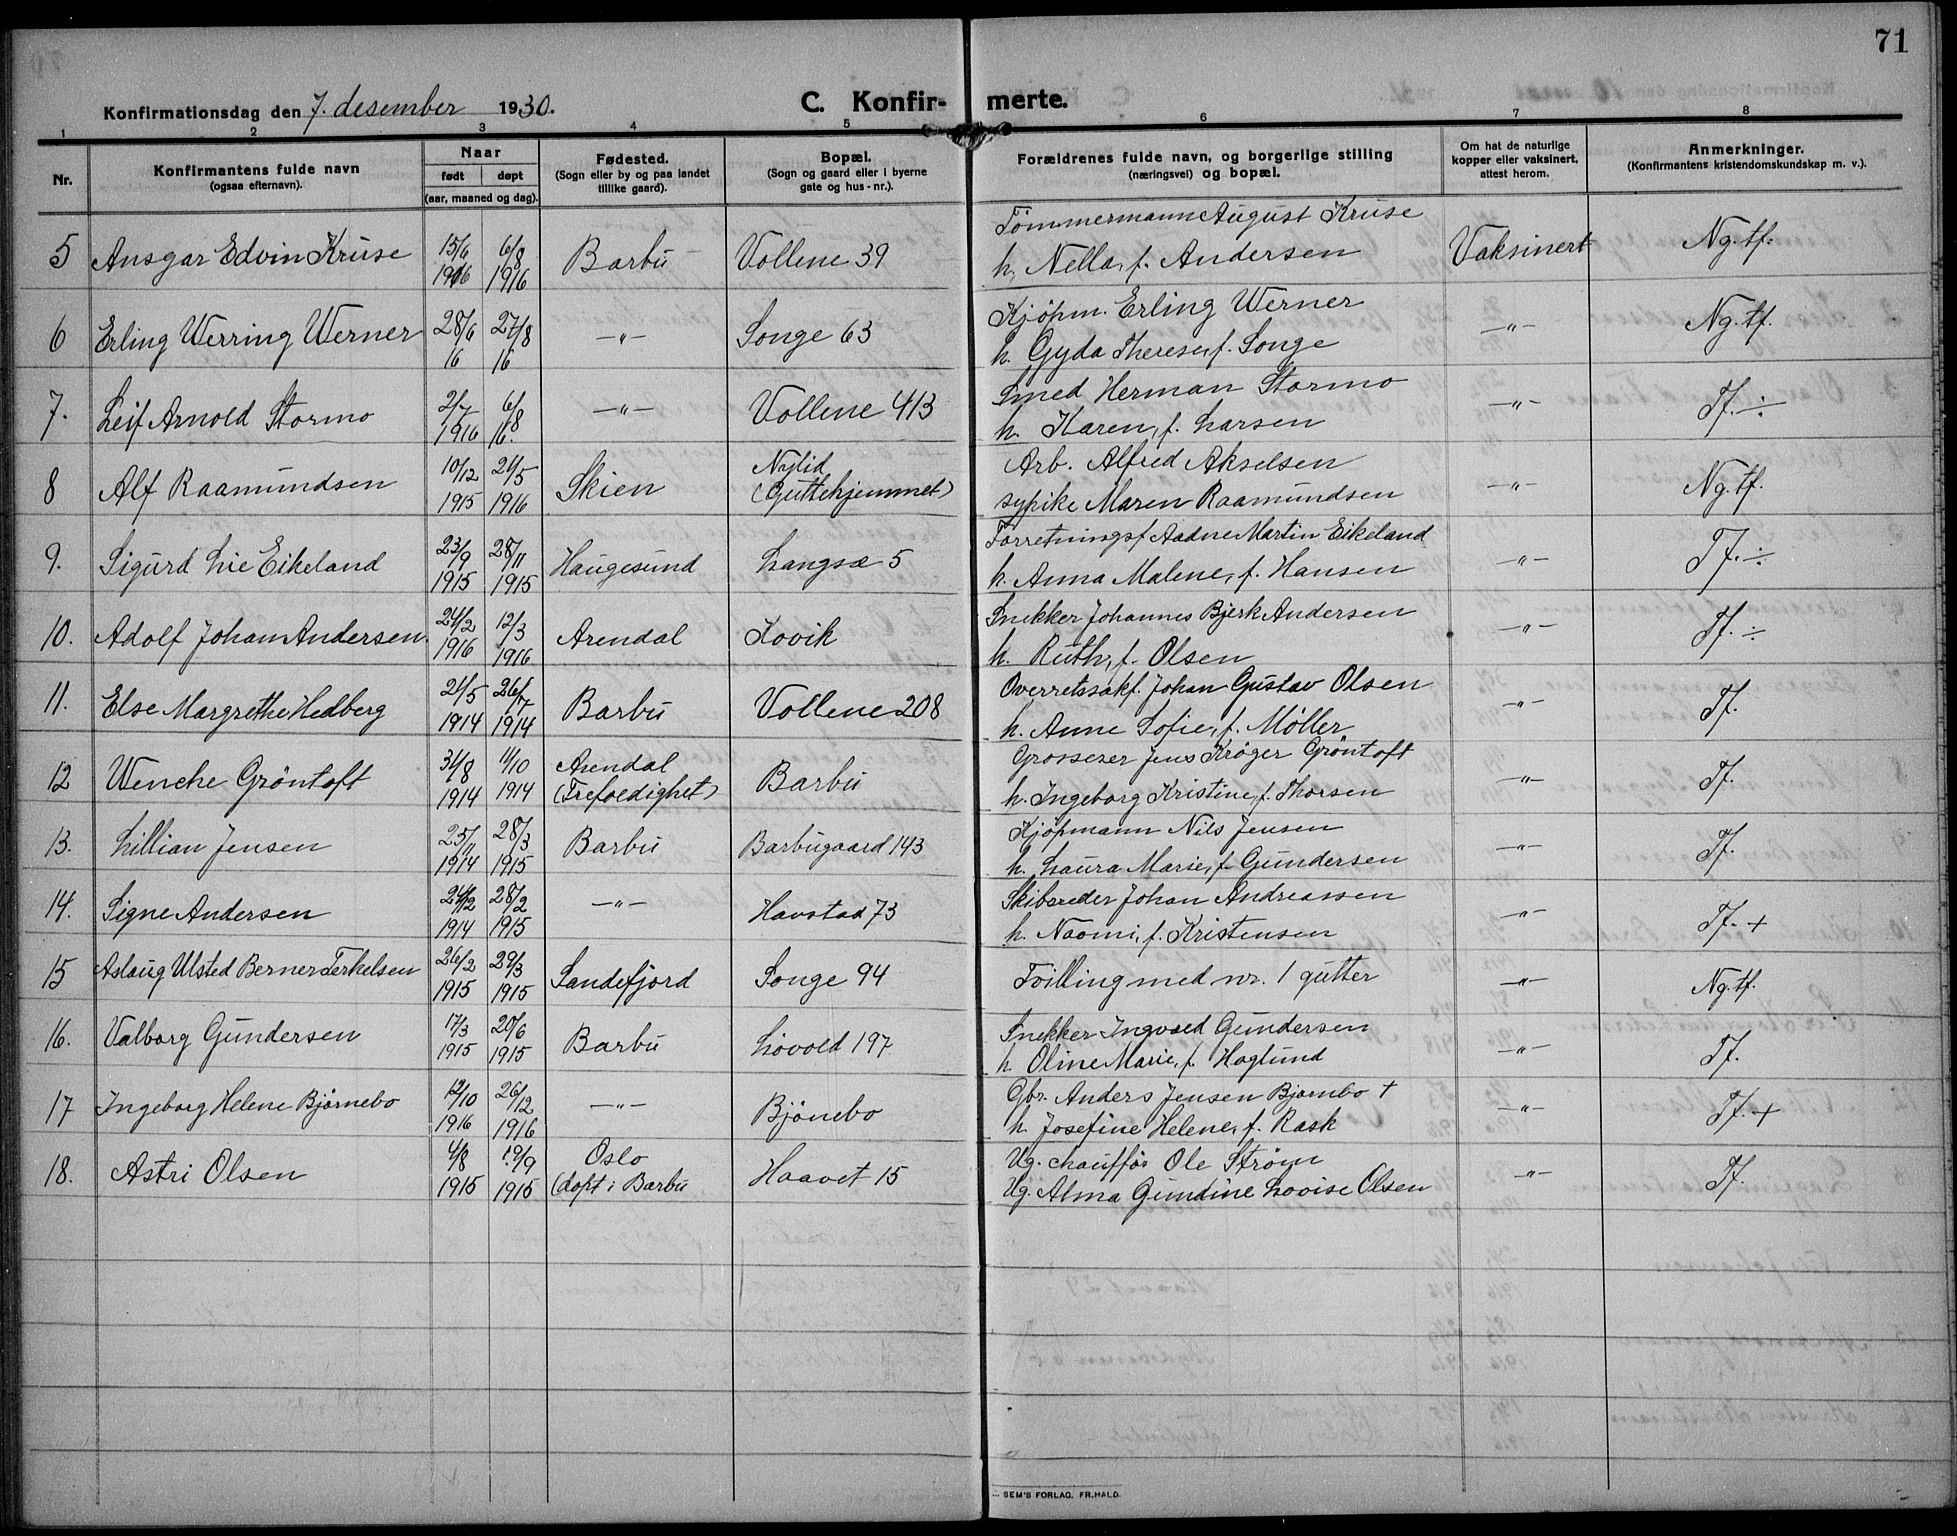 71
Konfirmationsdag den 7. desember 1930. C. Konfir- merte.
1 2 3 4 5 6 7 8
Nr.
Konfirmantens fulde navn
(ogsaa efternavn).
Naar
født døpt
(aar, maaned og dag).
Fødested.
(Sogn eller by og paa landet
tillike gaard).
Bopæl.
(Sogn og gaard eller i byerne
gate og hus-nr.).
Forældrenes fulde navn, og borgerlige stilling
(næringsvei) og bopæl.
Om hat de naturlige
kopper eller vaksinert,
attest herom.
Anmerkninger.
(Konfirmantens kristendomskundskap m. v.).
5 Ansgar Edvin Kruse 15/6 1916 6/8 1916 Barbu Vollene 39 Tømmermann August Kruse
h. Nella, f. Andersen Vaksinert Ng. tf.
6 Erling Werring Werner 28/6 16 27/8 16 —〃— Songe 63 Kjøpm. Erling Werner
h. Gyda Therese, f. Songe —〃— Ng. tf.
7. Leif Arnold Stormo 2/7 1916 6/8 16. —〃— Vollene 413 Smed Herman Stormo
h. Karen, f. Larsen —〃— Tf. ÷
8 Alf Raamundsen 10/12 1915 21/5 1916 Skien (Guttehjemmet) Arb. Alfred Akselsen
sypike Maren Raamundsen —〃— Ng. tf.
9. Sigurd Lie Eikeland 23/9 1915 28/11 1915 Haugesund Langsæ 5 Forretningsf Aadne Martin Eikeland
h. Anna Malene, f. Hansen —〃— Tf. ÷
10. Adolf Johan Andersen 24/2 1916 12/3 1916 Arendal Kovik Snekker Johannes Bjerk Andersen
h. Ruth, f. Olsen —〃— Tf. ÷
11. Else Margrethe Hedberg 21/5 1914 26/7 1914 Barbu Vollene 208 Overretssakf. Johan Gustav Olsen
h. Anne Sofie, f. Møller —〃— Tf.
12 Wenche Gröntoft 31/8 1914 11/10 1914 Arendal
(Trefoldighet) Barbu Grosserer Jens Krøger Gröntoft
h. Ingeborg Kristine, f. Thorsen —〃— Tf.
13. Lillian Jensen 25/11 1914 28/3 1915 Barbu Barbugaard 143 Kjøpmann Nils Jensen
h. Laura Marie, f. Gundersen —〃— Tf.
14. Signe Andersen 24/12 1914 28/2 1915 —〃— Havstad 73 Skibsreder Johan Andreassen
h. Naomi, f. Kristensen —〃— Tf. +
15 Aslaug Ulsted Berner Terkelsen 26/2 1915 29/3 1915 Sandefjord Songe 94 Tvilling med nr. 1 gutter —〃— Ng. tf.
16. Valborg Gundersen 17/3 1915 20/6 1915 Barbu Løvold 197 Snekker Ingvald Gundersen
h. Oline Marie, f. Haglund —〃— Tf.
17 Ingeborg Helene Bjørnebo 12/10 1916 26/12 1916 —〃— Bjönebo Gbr. Anders Jensen Bjørnbo +
h. Josefine Helene, f. Rask —〃— Tf. +
18. Astri Olsen 4/8 1915 19/9 1915 Oslo
(døpt i Barbu Haavet 15 Ug. chauffør Ole Strøm
Ug. Alma Gundine Lovise Olsen —〃— Tf.
SEM'S FORLAG. FR.HALD.